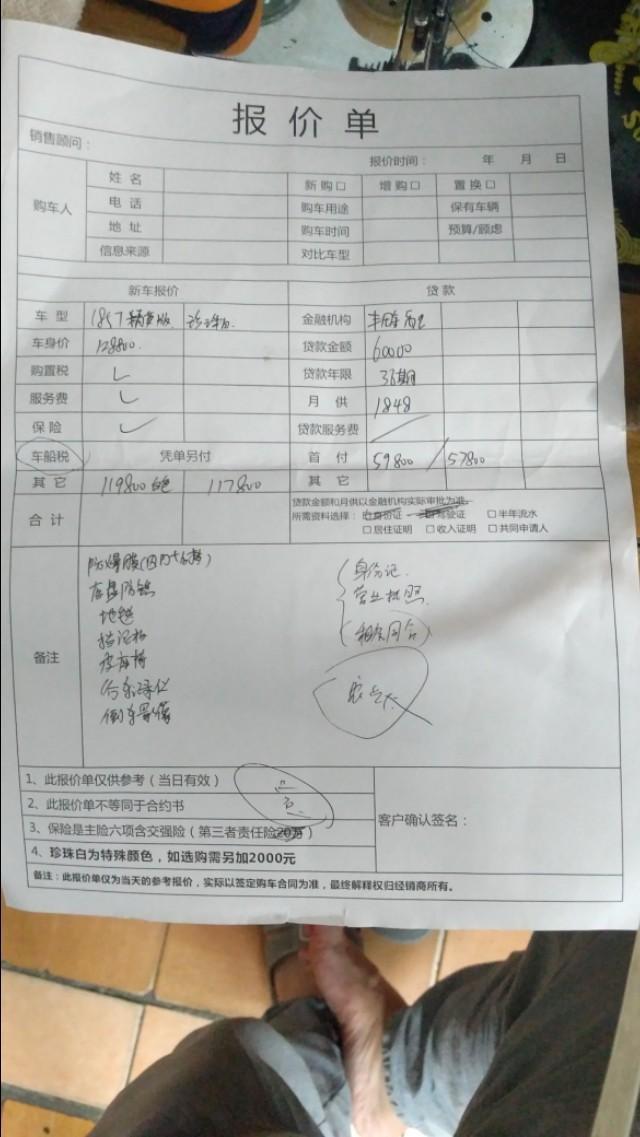 报价单
销售顾问：
报价时间： 年 月 日
购车人 姓名 新购口 增购口 置换口
电话 购车用途 保有车辆
地址 购车时间 预算/顾虑
信息来源 对比车型
新车报价 贷款
车型 金融机构
车身价 128800. 贷款金额 60000
购置税 ✓ 贷款年限 36期
服务费 ✓ 月供 1848
保险 ✓ 贷款服务费
车船税 凭单另付 首付 59800 / 57800
其它 119800 117800 其它
合计 贷款金额和月供以金融机构实际审批为准。
所需资料选择：
□居住证明 □收入证明 □共同申请人
□半年流水
备注
防爆膜
底盘防锈
地毯
倒车影像
身份证.
营业执照.
1、此报价单仅供参考（当日有效）
2、此报价单不等同于合约书
3、保险是主险六项含交强险（第三者责任险20万）
4、珍珠白为特殊颜色，如选购需另加2000元
客户确认签名：
备注：此报价单仅为当天的参考报价，实际以签定购车合同为准，最终解释权归经销商所有。